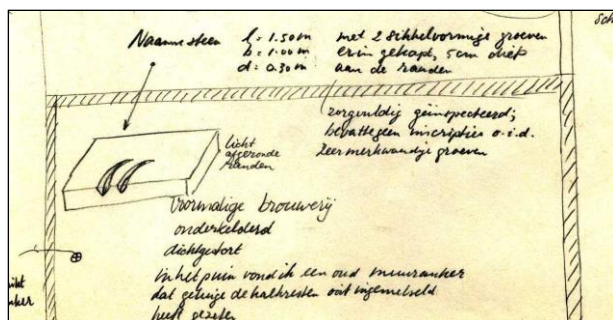 Naamse steen
l = 1.50 m met 2 sikkelvormige groeven
b = 1.00 m erin gekapt, 5 cm diep
d = 0.30 m aan de randen
Sch
zorgvuldig geïnspecteerd;
bevatte geen inscripties o.i.d.
zeer merkwaardige groeven
licht
afgeronde
randen
voormalige brouwerij
onderkelderd
dichtgestort
in het puin vond ik een oud muuranker
dat getuige de kalkresten ooit ingemetseld
heeft gezeten